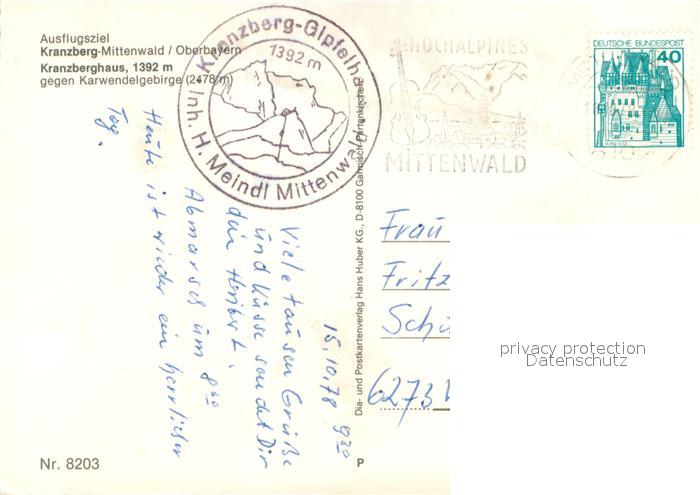 Ausflugsziel
Kranzberg-Mittenwald / Oberbayern
Kranzberghaus, 1392 m
gegen Karwendelgebirge (2478 m)
Kranzberg-Gipfelha
1392 m
Inh. H. Meindl Mittenwald
HOCHALPINES
MITTENWALD
DEUTSCHE BUNDESPOST
40
15.10.78 9³⁰
Viele tausen Grüße
und Küsse sendet Dir
dein Heribert.
Abmarsch um 8⁰⁰
Heute ist wieder ein herrlicher
Tag.
Dia- und Postkartenverlag Hans Huber KG., D-8100 Garmisch-Partenkirchen
Frau
Fritz
Schü
6273
privacy protection
Datenschutz
Nr. 8203
P